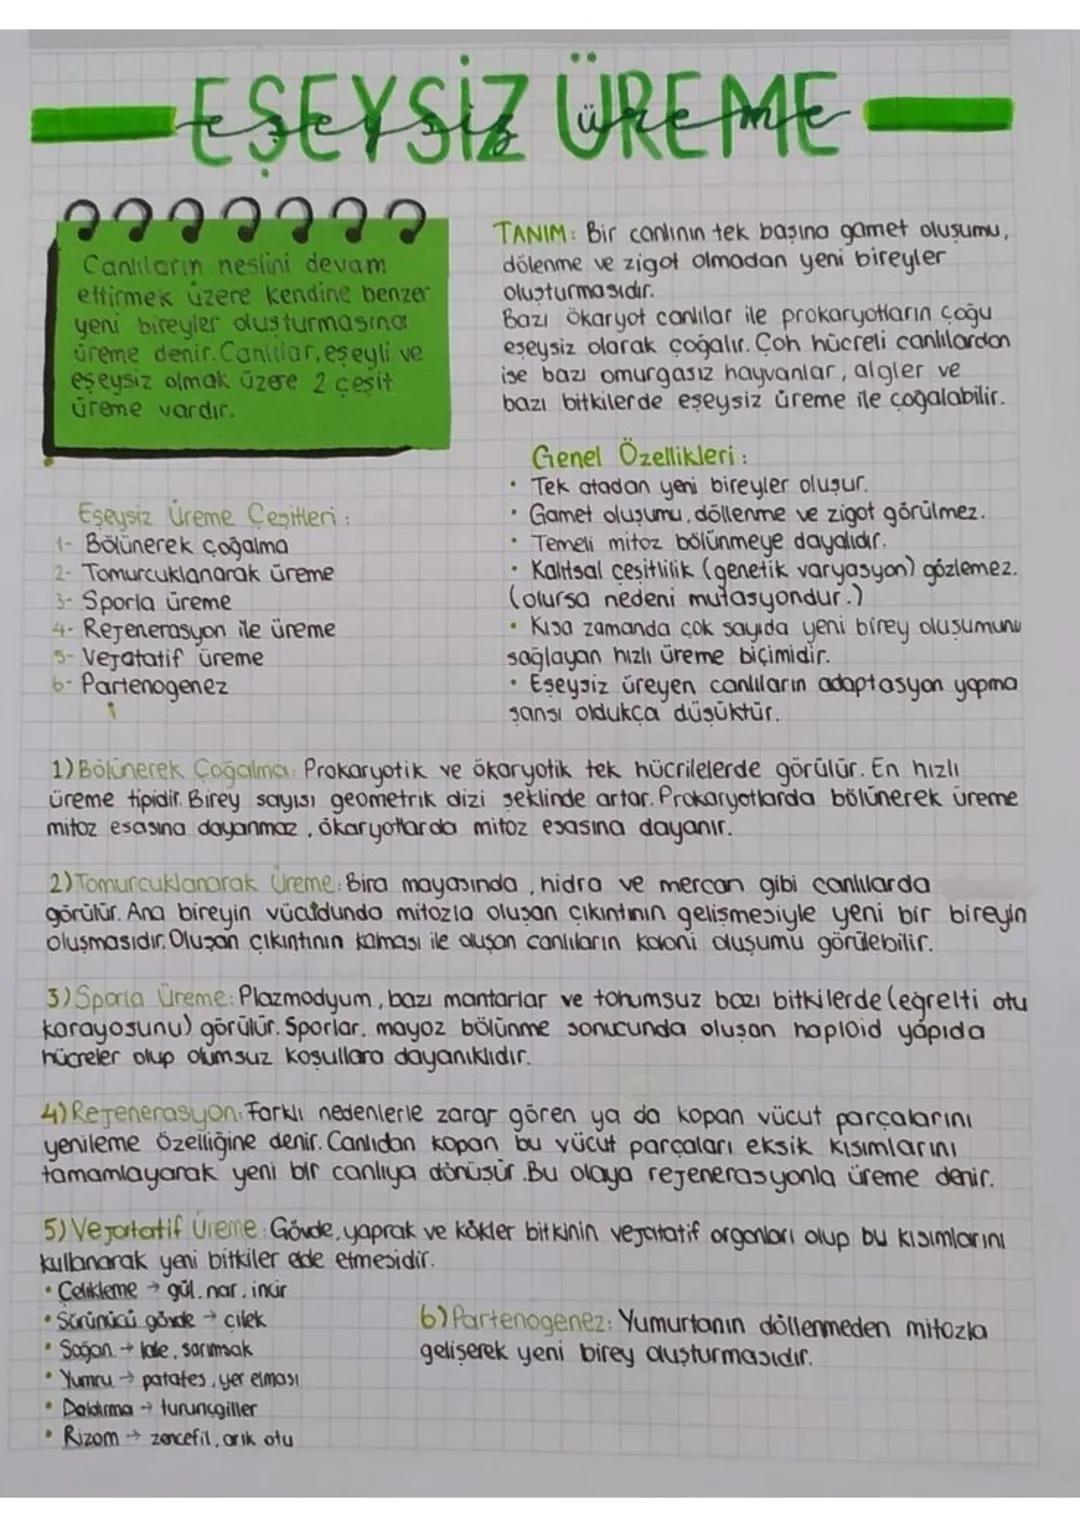 EŞEYSİZ ÜREME
eşeysiz üreme
Canlıların neslini devam
ettirmek üzere kendine benzer
yeni bireyler oluşturmasına
üreme denir. Canlılar, eşeyli ve
eşeysiz olmak üzere 2 çeşit
üreme vardır.
TANIM: Bir canlının tek başına gamet oluşumu,
dölenme ve zigot olmadan yeni bireyler
oluşturmasıdır.
Bazı ökaryot canlılar ile prokaryotların çoğu
eşeysiz olarak çoğalır. Çoh hücreli canlılardan
ise bazı omurgasız hayvanlar, algler ve
bazı bitkilerde eşeysiz üreme ile çoğalabilir.
Genel Özellikleri:
• Tek atadan yeni bireyler oluşur.
• Gamet oluşumu, döllenme ve zigot görülmez.
• Temeli mitoz bölünmeye dayalıdır.
• Kalıtsal çeşitlilik (genetik varyasyon) gözlemez.
(olursa nedeni mutasyondur.)
• Kısa zamanda çok sayıda yeni birey oluşumunu
sağlayan hızlı üreme biçimidir.
• Eşeysiz üreyen canlıların adaptasyon yapma
şansı oldukça düşüktür.
Eşeysiz Üreme Çeşitleri:
1- Bölünerek çoğalma
2- Tomurcuklanarak üreme
3- Sporla üreme
4- Rejenerasyon ile üreme
5- Vejatatif üreme
6- Partenogenez
1) Bölünerek Çoğalma: Prokaryotik ve ökaryotik tek hücrilelerde görülür. En hızlı
üreme tipidir. Birey sayısı geometrik dizi şeklinde artar. Prokaryotlarda bölünerek üreme
mitoz esasına dayanmaz, ökaryotlarda mitoz esasına dayanır.
2) Tomurcuklanarak Üreme: Bira mayasında, hidra ve mercan gibi canlılarda
görülür. Ana bireyin vücudunda mitozla oluşan çıkıntının gelişmesiyle yeni bir bireyin
oluşmasıdır. Oluşan çıkıntının kalması ile oluşan canlıların koloni oluşumu görülebilir.
3) Sporla Üreme: Plazmodyum, bazı mantarlar ve tohumsuz bazı bitkilerde (eğrelti otu
karayosunu) görülür. Sporlar, mayoz bölünme sonucunda oluşan haploid yapıda
hücreler olup olumsuz koşullara dayanıklıdır.
4) Rejenerasyon: Farklı nedenlerle zarar gören ya da kopan vücut parçalarını
yenileme özelliğine denir. Canlıdan kopan bu vücut parçaları eksik kısımlarını
tamamlayarak yeni bir canlıya dönüşür. Bu olaya rejenerasyonla üreme denir.
5) Vejatatif Üreme: Gövde, yaprak ve kökler bitkinin vejatatif organları olup bu kısımlarını
kullanarak yeni bitkiler elde etmesidir.
• Çelikleme → gül, nar, incir
• Sürünücü gövde → çilek
• Soğan → lale, sarımsak
• Yumru → patates, yer elması
• Daldırma → turunçgiller
• Rizom → zencefil, arık otu
6) Partenogenez: Yumurtanın döllenmeden mitozla
gelişerek yeni birey oluşturmasıdır.